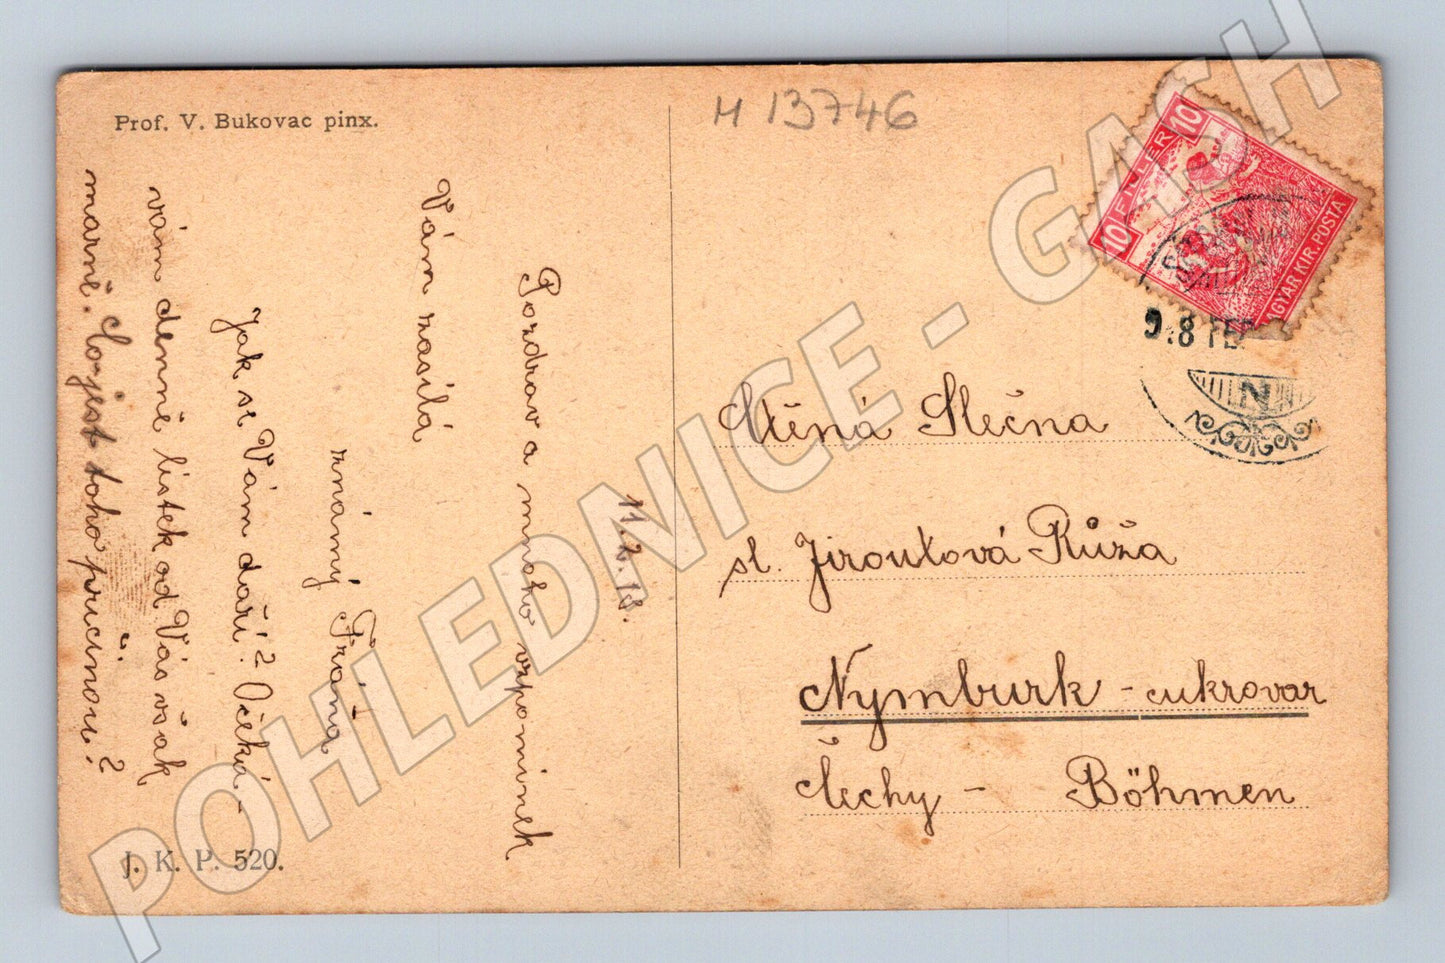 Prof. V. Bukovac pinx.
H 13746
11.2.18.
Pozdrav a mnoho vzpomínek
Vám zasílá
známý Fráňa
Jak se Vám daří? Očeká-
vám denně lístek od Vás však
marně. Co jest toho příčinou?
J. K. P. 520.
10 FILLÉR 10
MAGYAR KIR. POSTA
918 FEB
N
Ctěná Slečna
sl. Jiroutová Růža
Nymburk - cukrovar
Čechy - Böhmen
POHLEDNICE - GASH